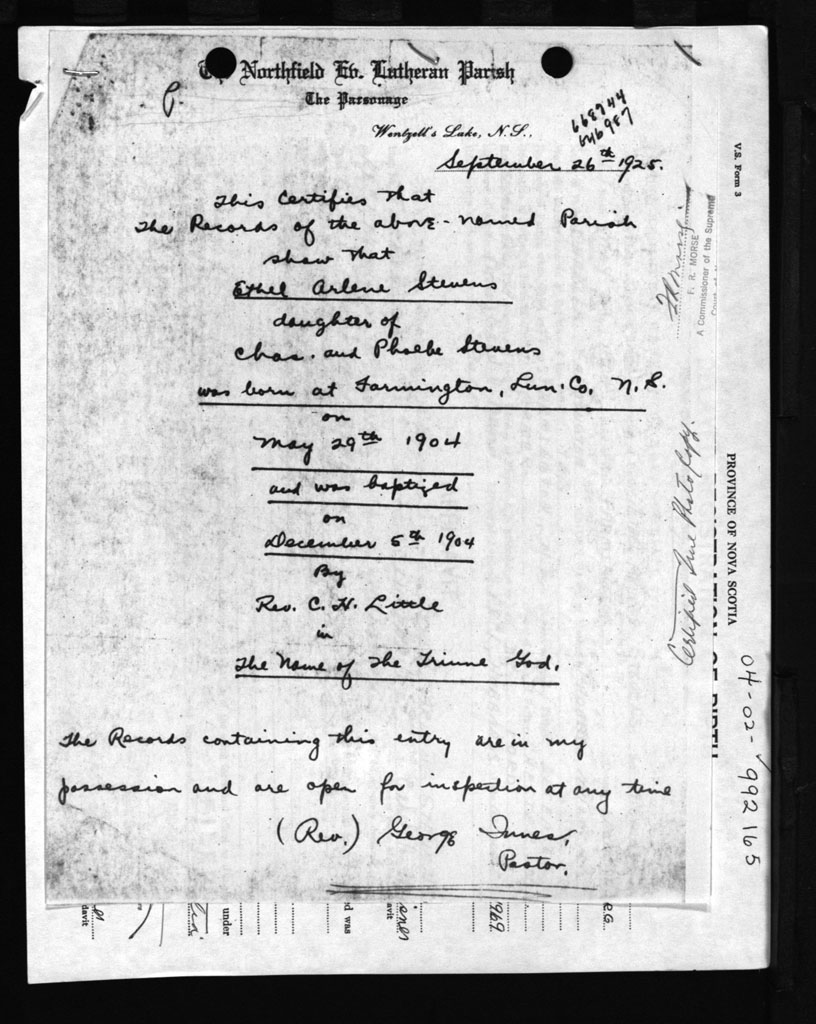 The Northfield Ev. Lutheran Parish
The Parsonage
Wentzell's Lake, N.S.,
668944
September 26th 1925.
This Certifies That
The Records of the above-named Parish
show that
Ethel Arlene Stevens
daughter of
Chas. and Phoebe Stevens
was born at Farmington, Lun. Co. N.S.
on
May 29th 1904
and was baptized
on
December 5th 1904
By
Rev. C. H. Little
in
The Name of The Triune God.
The Records containing this entry are in my
possession and are open for inspection at any time
(Rev.) George Innes,
Pastor.
V.S. Form 3
F. R. MORSE
A Commissioner of the Supreme
Certified True Photo Copy.
PROVINCE OF NOVA SCOTIA
REGISTRATION OF BIRTH
04-02-992165
under
d was
davit
1969